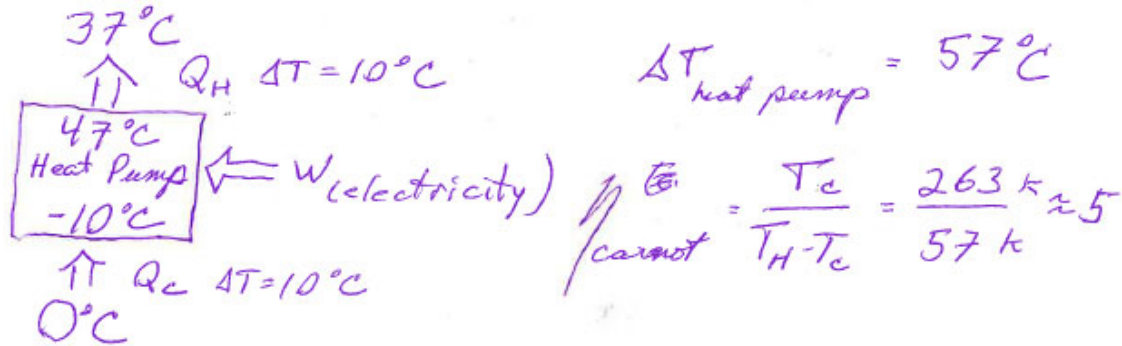 37°C
Q_H ΔT = 10°C
47°C
Heat Pump
-10°C
W (electricity)
Q_C ΔT = 10°C
0°C
ΔT heat pump = 57°C
η carnot = T_c / (T_H - T_c) = 263 K / 57 K ≈ 5